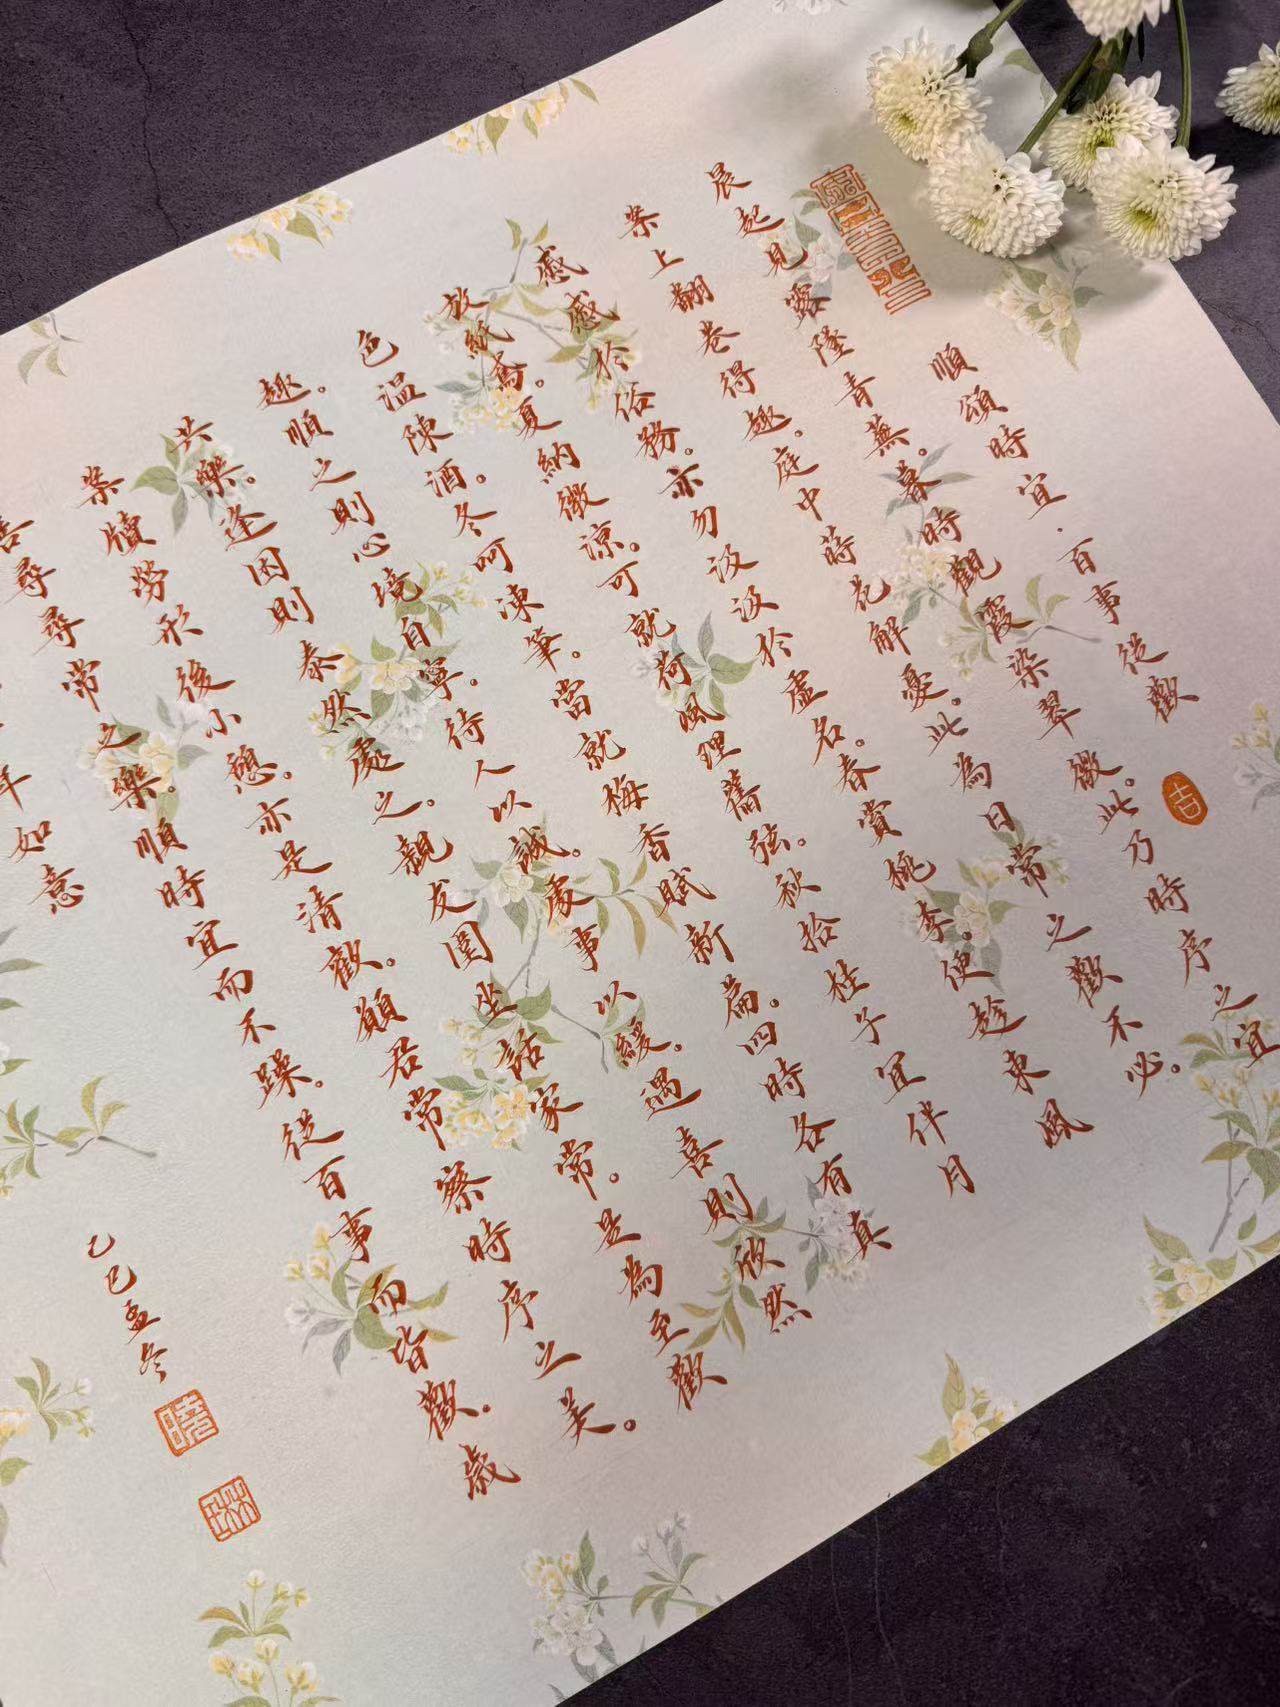 順頌時宜.百事從歡
吉
晨起見露墜青蕪。暮時觀霞染翠微。此乃時序之宜
案上翻卷得趣。庭中蒔花解憂。此為日常之歡不必。
慼慼於俗務。亦勿汲汲於虛名。春賞桃李。便趁東風
放紙鳶。夏納微涼。可就荷風理舊弦。秋拾桂子宜伴月
色溫陳酒。冬呵凍筆。當就梅香賦新篇。四時各有真
趣。順之則心境自寧。待人以誠。處事以緩。遇喜則欣然
共樂。逢因則泰然處之。親友圍坐話家常。是為至歡
案牘勞形後小憩。亦是清歡。願君常察時序之美。
善尋尋常之樂。順時宜而不躁。從百事而皆歡。歲
年如意
乙巳孟冬
曉